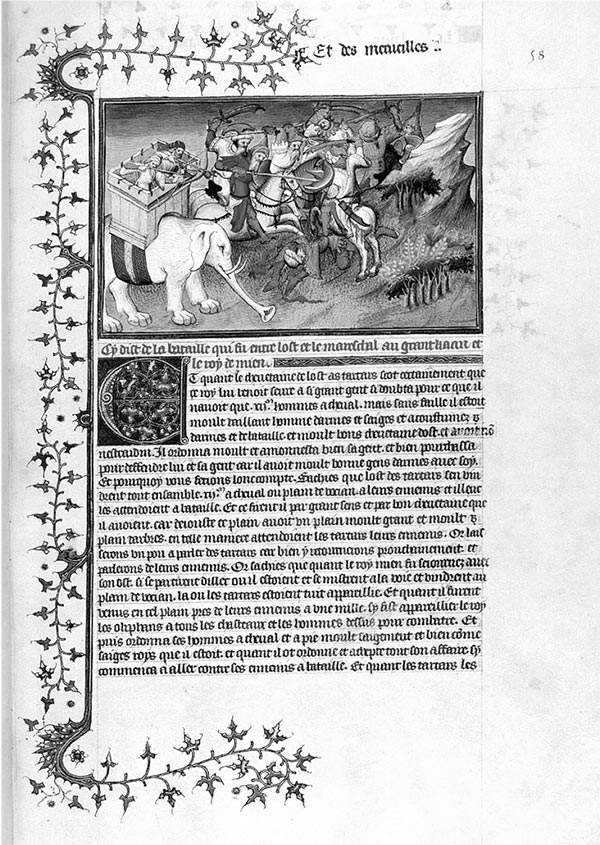 Et des merueilles
58
Cy dist de la bataille qui fu entre lost et le mareschal au grant kaan et
le roy de mien.
Et quant le cheuetaine de lost as tartars scot certainement que
ce roy lui venoit seure a si grant gent si doubta pour ce que il
nauoit que .xii.m hommes a cheual. mais sans faille il estoit
moult vaillant homme darmes et saiges et acoustumez
darmes et de bataille. et moult bons cheuetaine dost. et auoit nõ
nestradin. Il ordonna moult et amonnesta bien sa gent. et bien pourchassa
pour deffendre lui et sa gent car il auoit moult bonne gens darmes auec soy.
Et pourquoy vous ferons lonc compte. Saches que lost des tartars sen vin
drent tout ensamble .xii.m a cheual ou plain de vocian. a leurs ennemis et illeuc
les attendoient a bataille. Et ce firent il par grant sens et par bon cheuetaine que
il auoient. car de iouste ce plain auoit vn plain moult grant et moult
plain darbres. en telle maniere attendoient les tartars leurs ennemis. Or lais
serons vn pou a parler des tartars car bien y retournerons prouchainement. et
parlerons de leurs ennemis. Or saches que quant le roy mien fu seiournez auec
son ost. si se partirent dilluec ou il estoient et se mistrent a la voie et vindrent au
plain de vocian. la ou les tartars estoient tuit appareillie. Et quant il furent
venus en cel plain pres de leurs ennemis a vne mille. sy fist appareillier le roy
les oliphans a tous les chasteaux et les hommes dessus pour combatre. Et
puis ordonna ses hommes a cheual et a pie moult saigement et bien cõme
saiges roys que il estoit. et quant il ot ordonne et adrecie tout son affaire. sy
commenca a aller contre ses ennemis a bataille. Et quant les tartars les